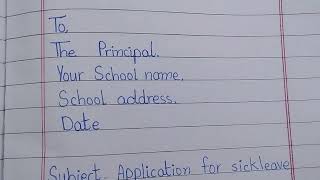 To,
The Principal.
Your School name,
School address.
Date
Subject- Application for sickleave